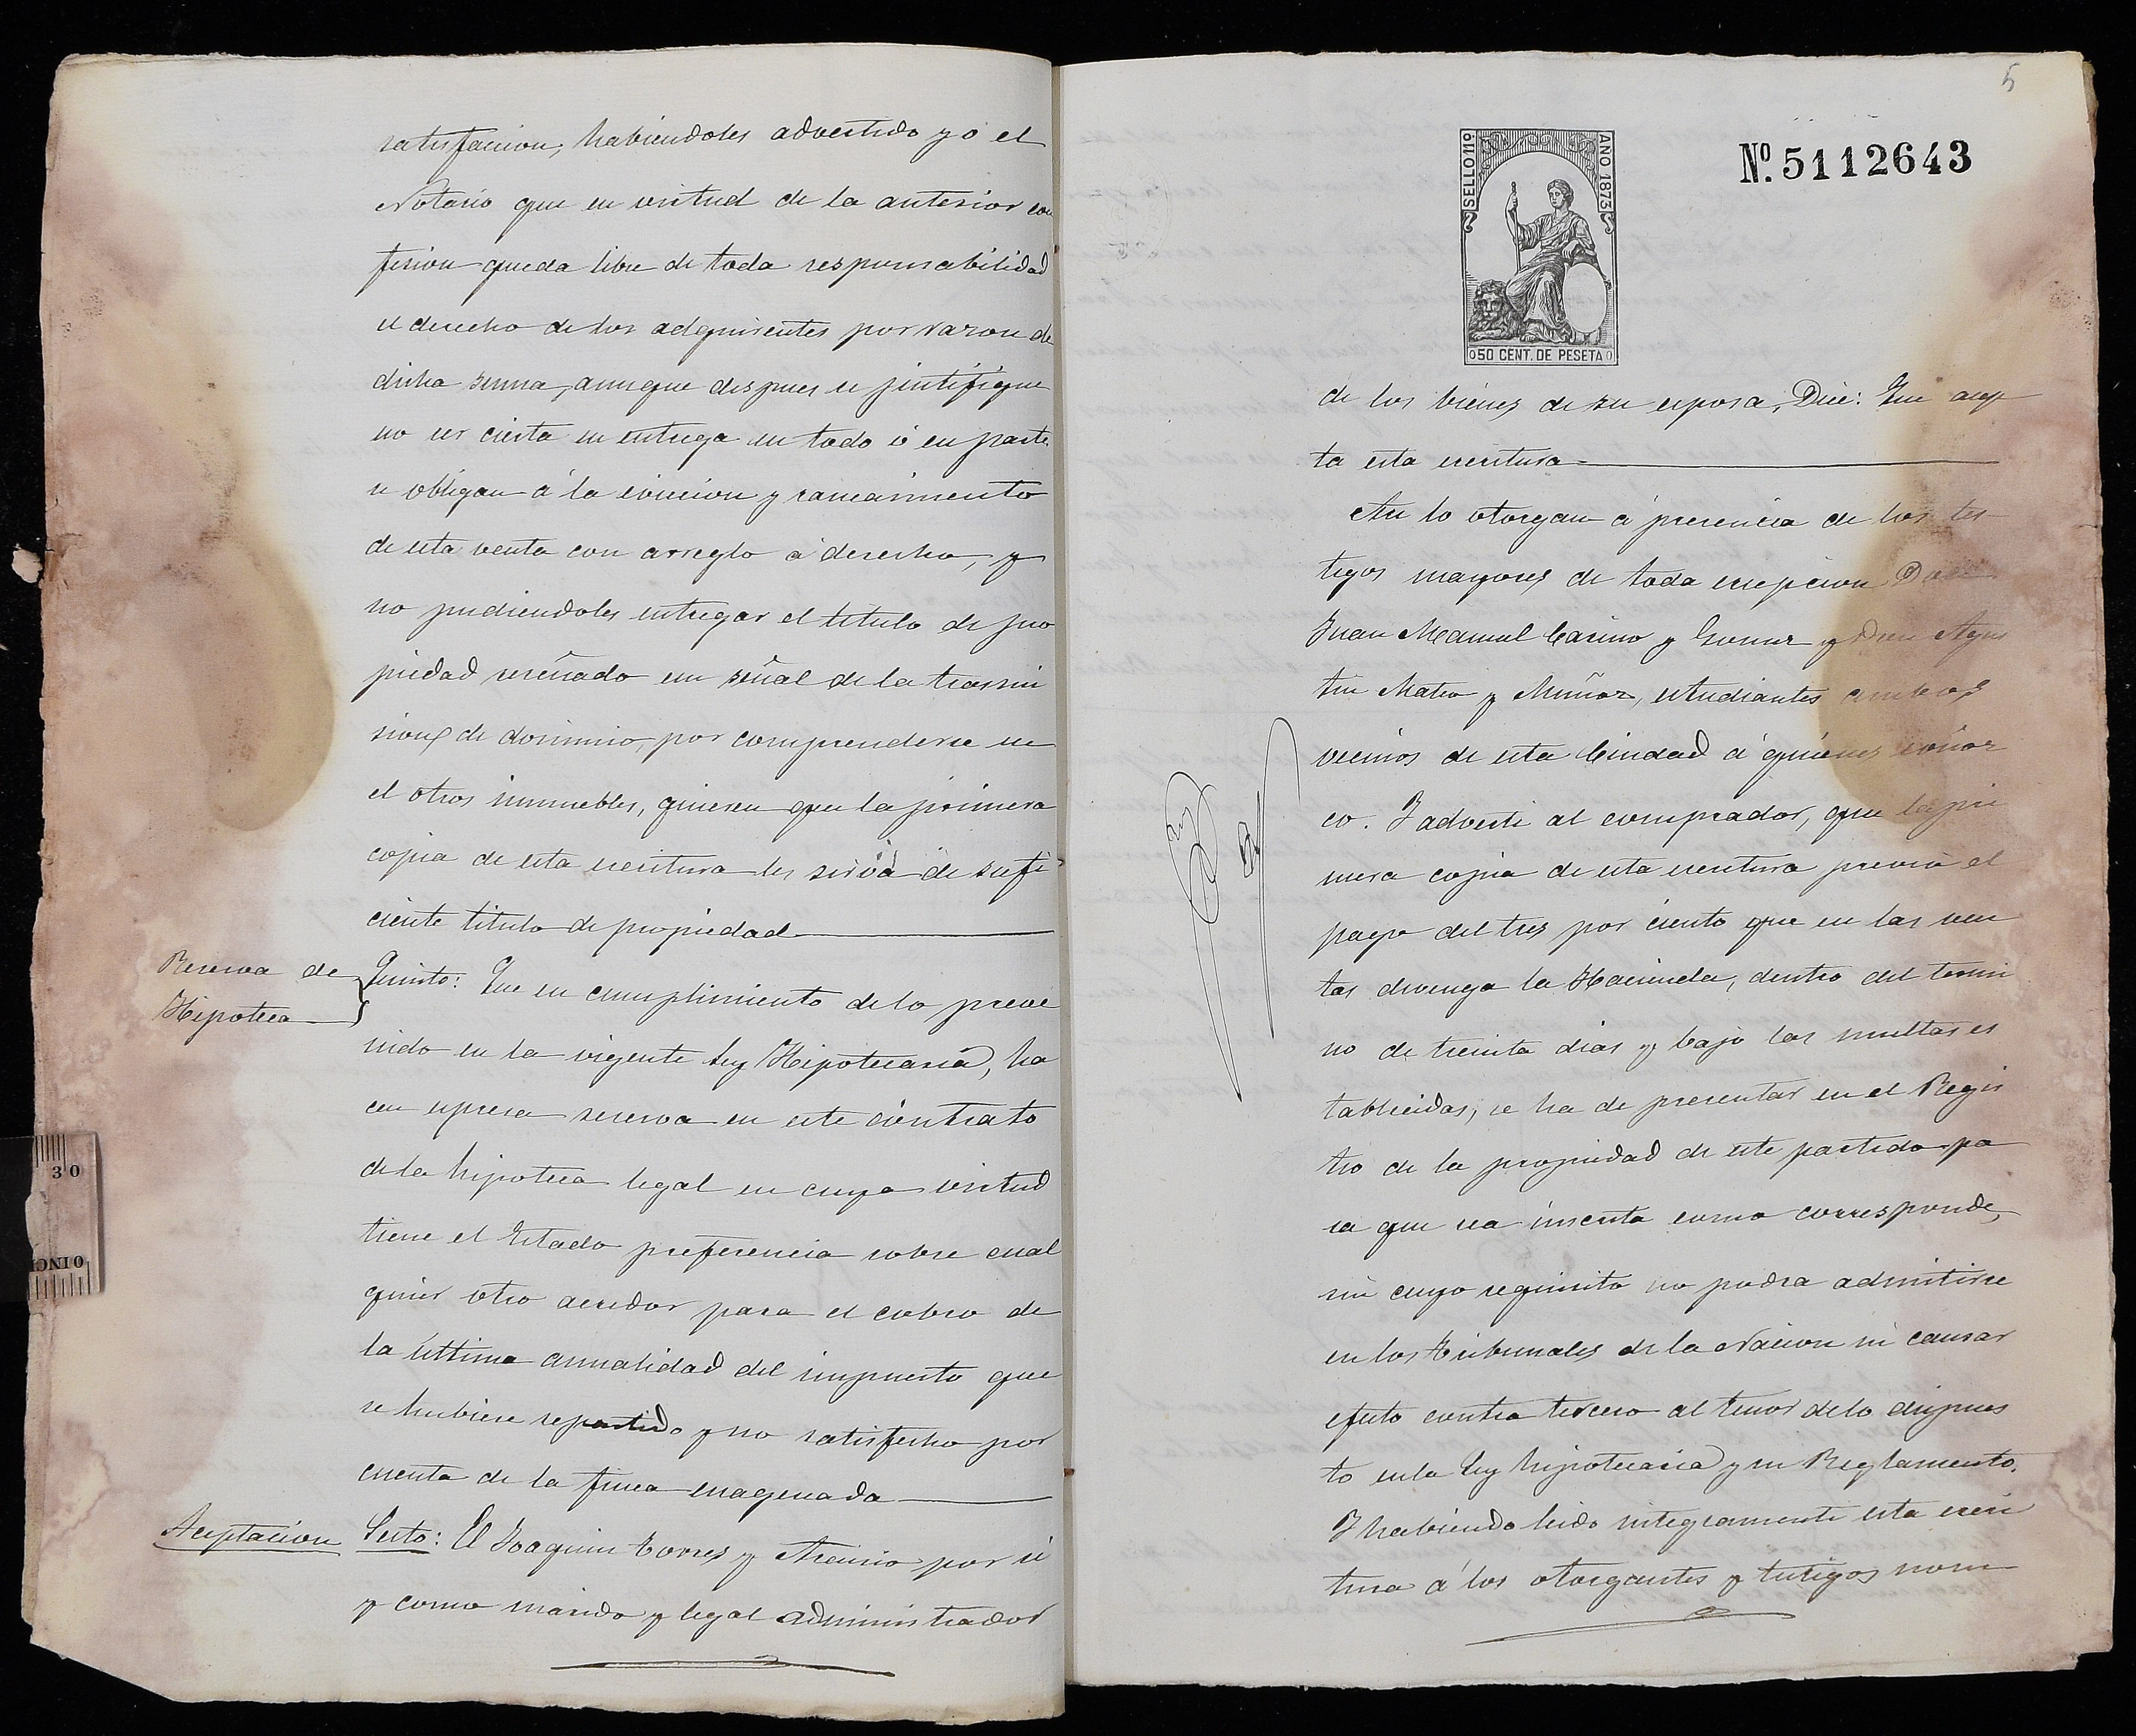 satisfacion, habiendoles advertido yo el
Notario que en virtud de la anterior con
fesion queda libre de toda responsabilidad
el derecho de los adquirentes por razon de
dicha suma, aunque despues se justifique
no ser cierta su entrega en todo ó en parte
se obligan á la eviccion y saneamiento
de esta venta con arreglo á derecho, y
no pudiendoles entregar el titulo de pro
piedad reseñado en señal de la trasmi
sion de dominio, por comprenderse en
el otros inmuebles, quieren que la primera
copia de esta escritura les sirva de sufi
ciente titulo de propiedad
Reserva de
Hipoteca
Quinto: Que en cumplimiento de lo preve
nido en la vigente Ley Hipotecaria, ha
cen espresa reserva en este contrato
de la hipoteca legal en cuya virtud
tiene el Estado preferencia sobre cual
quier otro acredor para el cobro de
la última anualidad del impuesto que
se hubiere repartido y no satisfecho por
cuenta de la finca enagenada
Aceptacion
Sesto: El Joaquin Torres y Asensio por si
y como marido y legal administrador
5
SELLO 11º
AÑO 1873
50 CENT. DE PESETA
Nº. 5112643
de los bienes de su esposa, Dice: Que acep
ta esta escritura
Asi lo otorgan á presencia de los tes
tigos mayores de toda escepcion Don
Juan Manuel Casino y Gomez y Don Agus
tin Mateo y Muñoz, estudiantes ambos
vecinos de esta Ciudad á quienes conoz
co. Y adverti al comprador, que la pri
mera copia de esta escritura previo el
pago del tres por ciento que en las ven
tas devenga la Hacienda, dentro del termi
no de treinta dias y bajo las multas es
tablecidas, se ha de presentar en el Regis
tro de la propiedad de este partido pa
ra que sea inscrita como corresponde,
sin cuyo requisito no podra admitirse
en los Tribunales de la Nacion ni causar
efecto contra tercero al tenor de lo dispues
to en la Ley hipotecaria y su Reglamento.
Y habiendo leido integramente esta escri
tura á los otorgantes y testigos nom